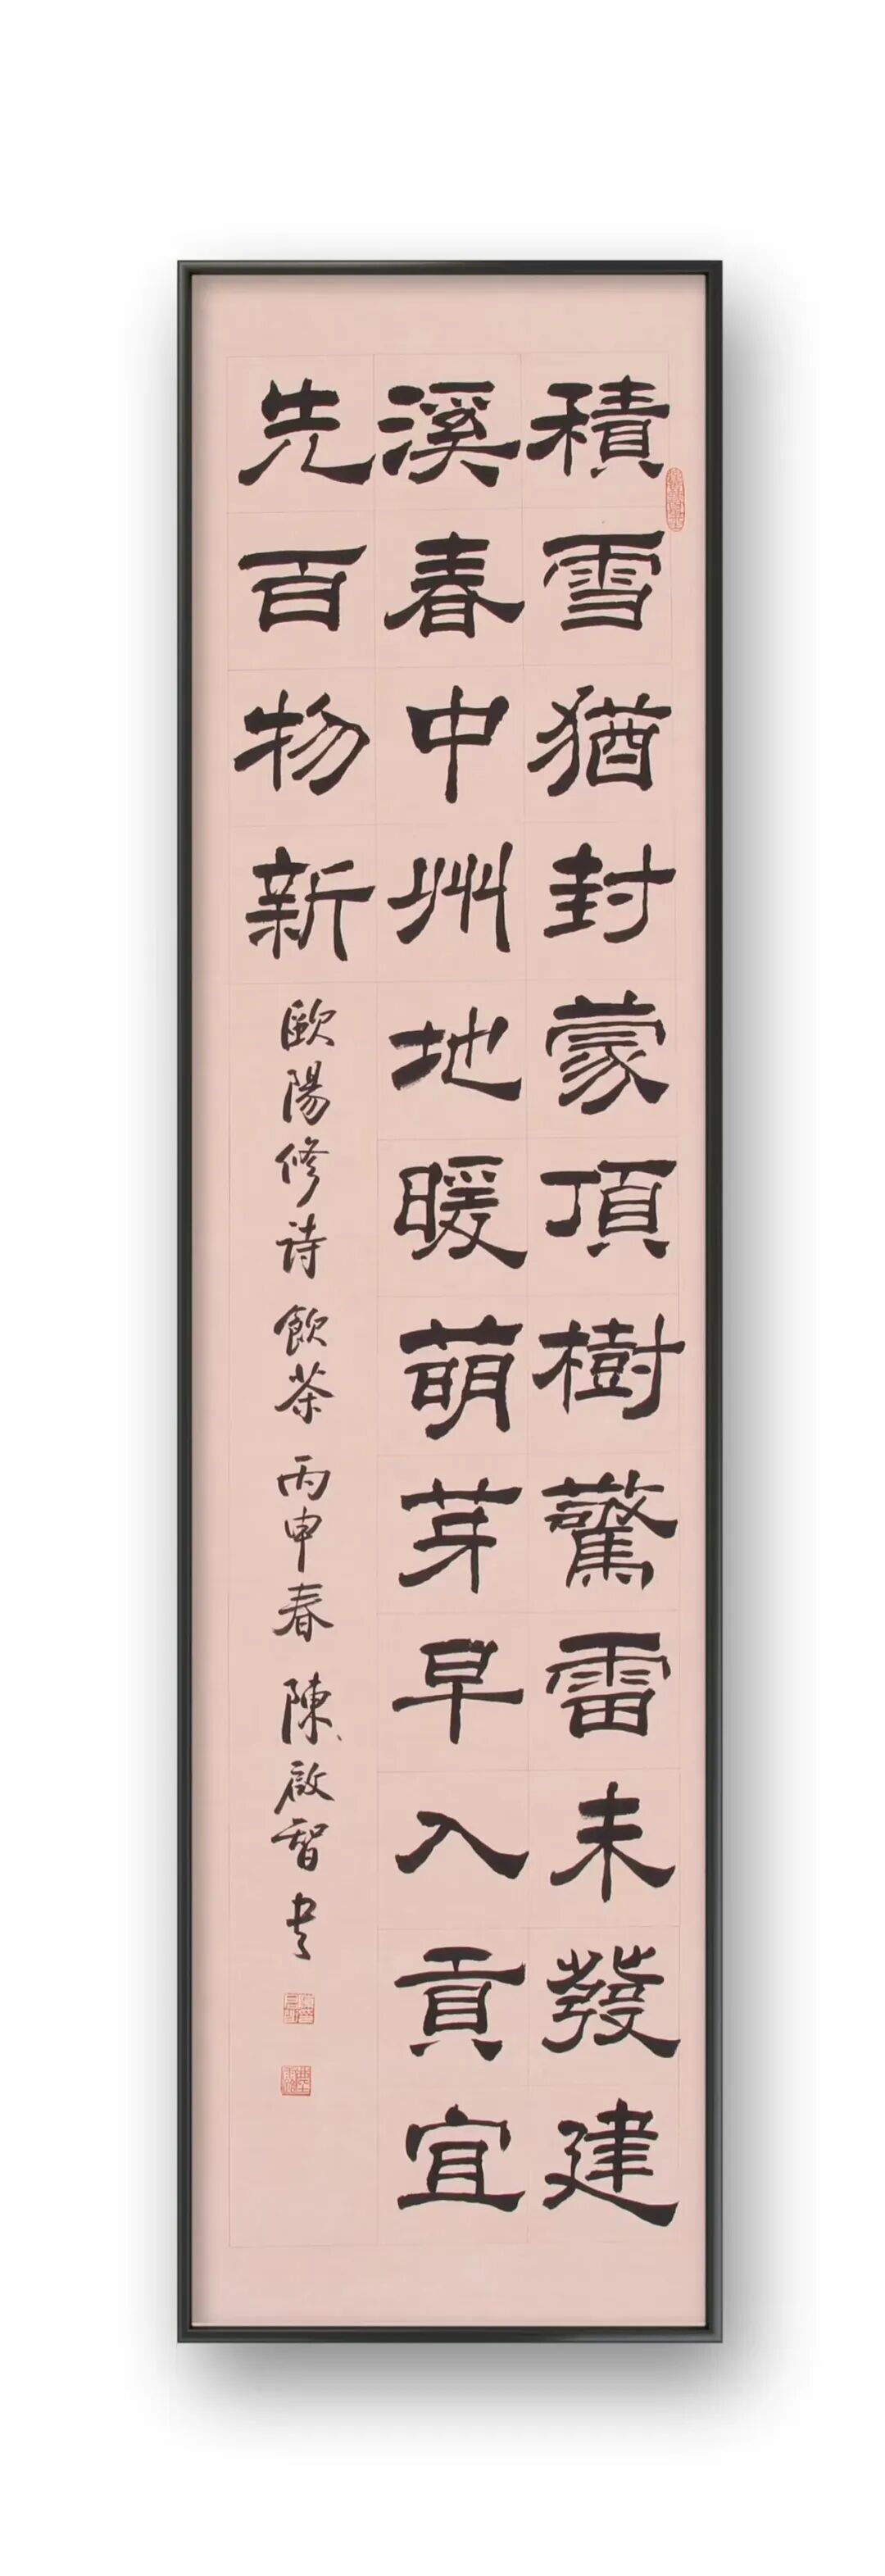 積雪猶封蒙頂樹驚雷未發建
溪春中州地暖萌芽早入貢宜
先百物新
歐陽修诗 飲茶 丙申春 陳啟智书